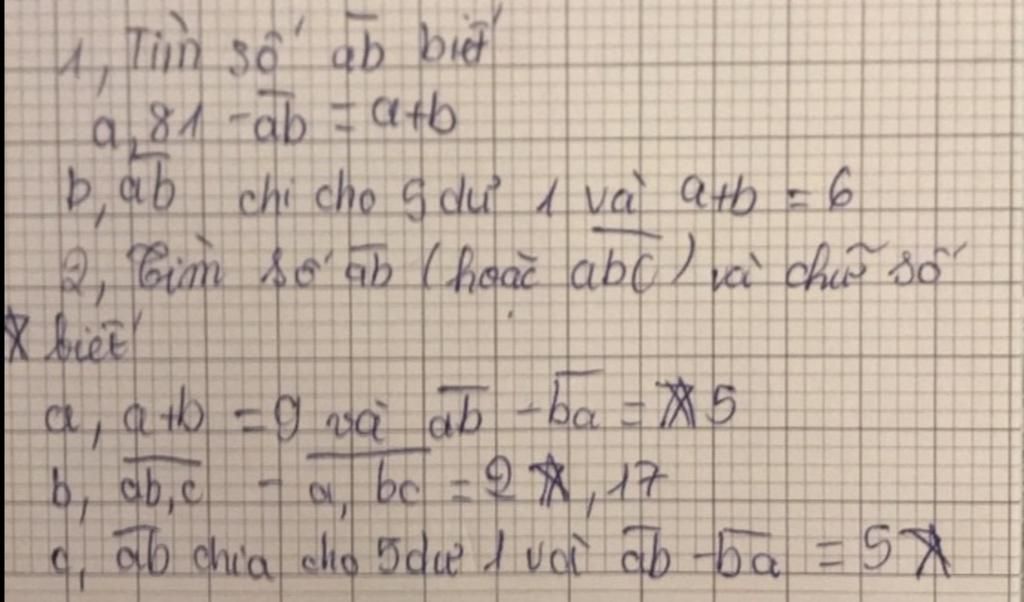 1, Tìm số a̅b̅ biết
a, 81 - a̅b̅ = a+b
b, a̅b̅ chi cho 9 dư 1 và a+b = 6
2, Tìm số a̅b̅ (hoặc a̅b̅c̅) và chữ số
* biết
a, a+b = 9 và a̅b̅ - b̅a̅ = *5
b, a̅b̅,̅c̅ - a̅,̅b̅c̅ = 2*,17
c, a̅b̅ chia cho 5 dư 1 và a̅b̅ - b̅a̅ = 5*